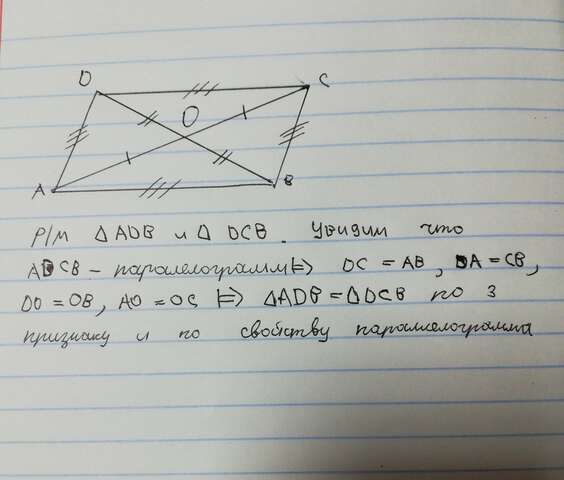 D C
O
A B
Р/м △ADB и △ DCB. Увидим что
ADCB - паралелограмм => DC = AB, DA = CB,
DO = OB, AO = OC => △ADB = △DCB по 3
признаку и по свойству параллелограмма